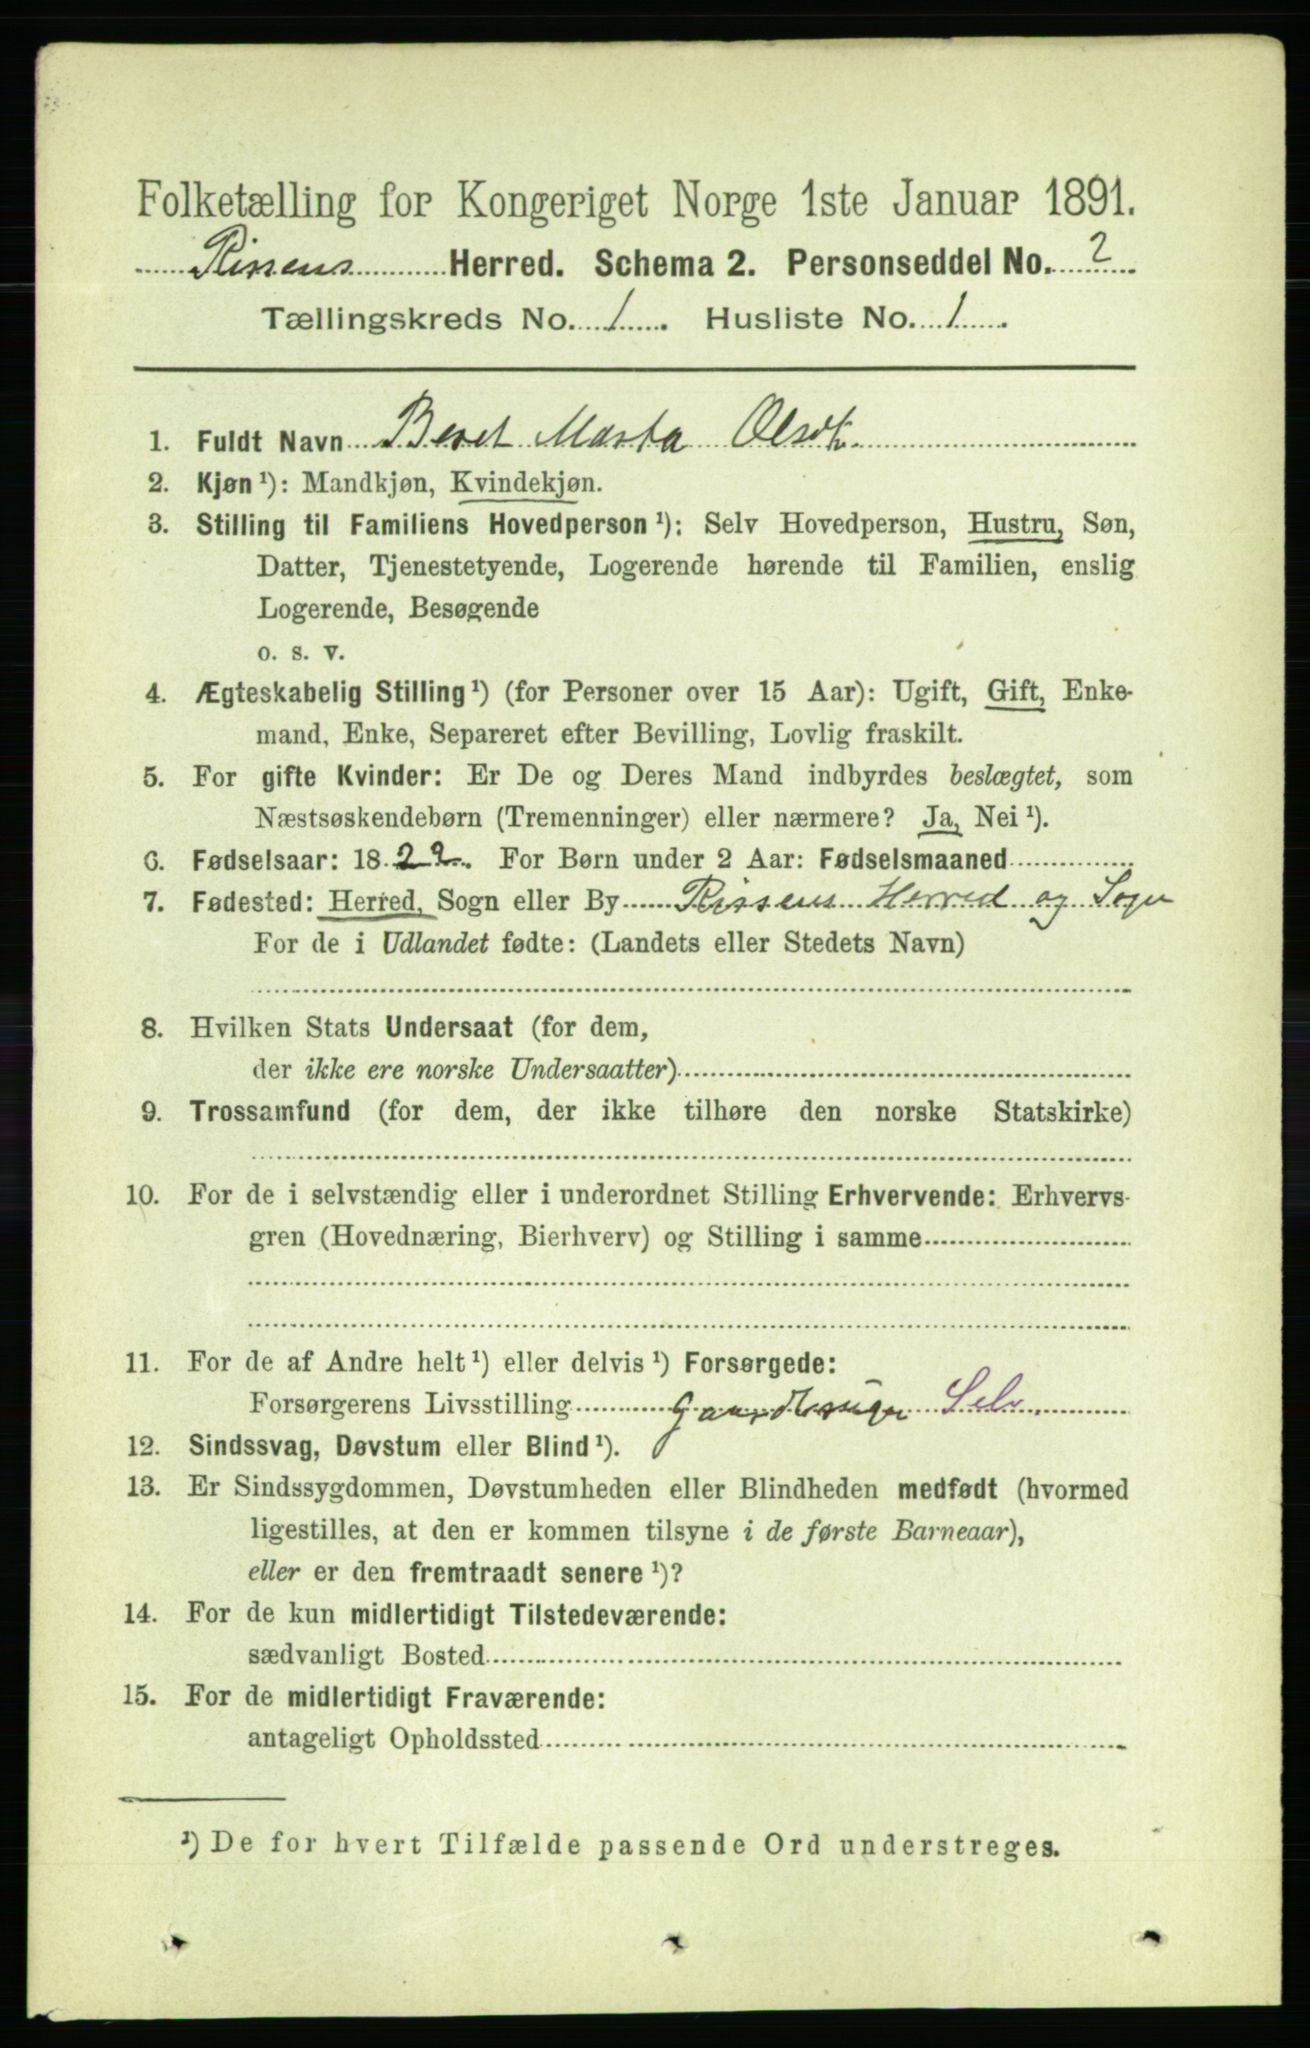 Folketælling for Kongeriget Norge 1ste Januar 1891.
Rissens Herred. Schema 2. Personseddel No. 2
Tællingskreds No. 1. Husliste No. 1.
1. Fuldt Navn Beret Marta Olsdtr.
2. Kjøn ¹): Mandkjøn, Kvindekjøn.
3. Stilling til Familiens Hovedperson ¹): Selv Hovedperson, Hustru, Søn,
Datter, Tjenestetyende, Logerende hørende til Familien, enslig
Logerende, Besøgende
o. s. v.
4. Ægteskabelig Stilling ¹) (for Personer over 15 Aar): Ugift, Gift, Enke-
mand, Enke, Separeret efter Bevilling, Lovlig fraskilt.
5. For gifte Kvinder: Er De og Deres Mand indbyrdes beslægtet, som
Næstsøskendebørn (Tremenninger) eller nærmere? Ja, Nei ¹).
6. Fødselsaar: 1822. For Børn under 2 Aar: Fødselsmaaned
7. Fødested: Herred, Sogn eller By Rissens Herred og Sogn
For de i Udlandet fødte: (Landets eller Stedets Navn)
8. Hvilken Stats Undersaat (for dem,
der ikke ere norske Undersaatter)
9. Trossamfund (for dem, der ikke tilhøre den norske Statskirke)
10. For de i selvstændig eller i underordnet Stilling Erhvervende: Erhvervs-
gren (Hovednæring, Bierhverv) og Stilling i samme
11. For de af Andre helt ¹) eller delvis ¹) Forsørgede:
Forsørgerens Livsstilling Gaardbruger Selv.
12. Sindssvag, Døvstum eller Blind ¹).
13. Er Sindssygdommen, Døvstumheden eller Blindheden medfødt (hvormed
ligestilles, at den er kommen tilsyne i de første Barneaar),
eller er den fremtraadt senere ¹)?
14. For de kun midlertidigt Tilstedeværende:
sædvanligt Bosted
15. For de midlertidigt Fraværende:
antageligt Opholdssted
¹) De for hvert Tilfælde passende Ord understreges.